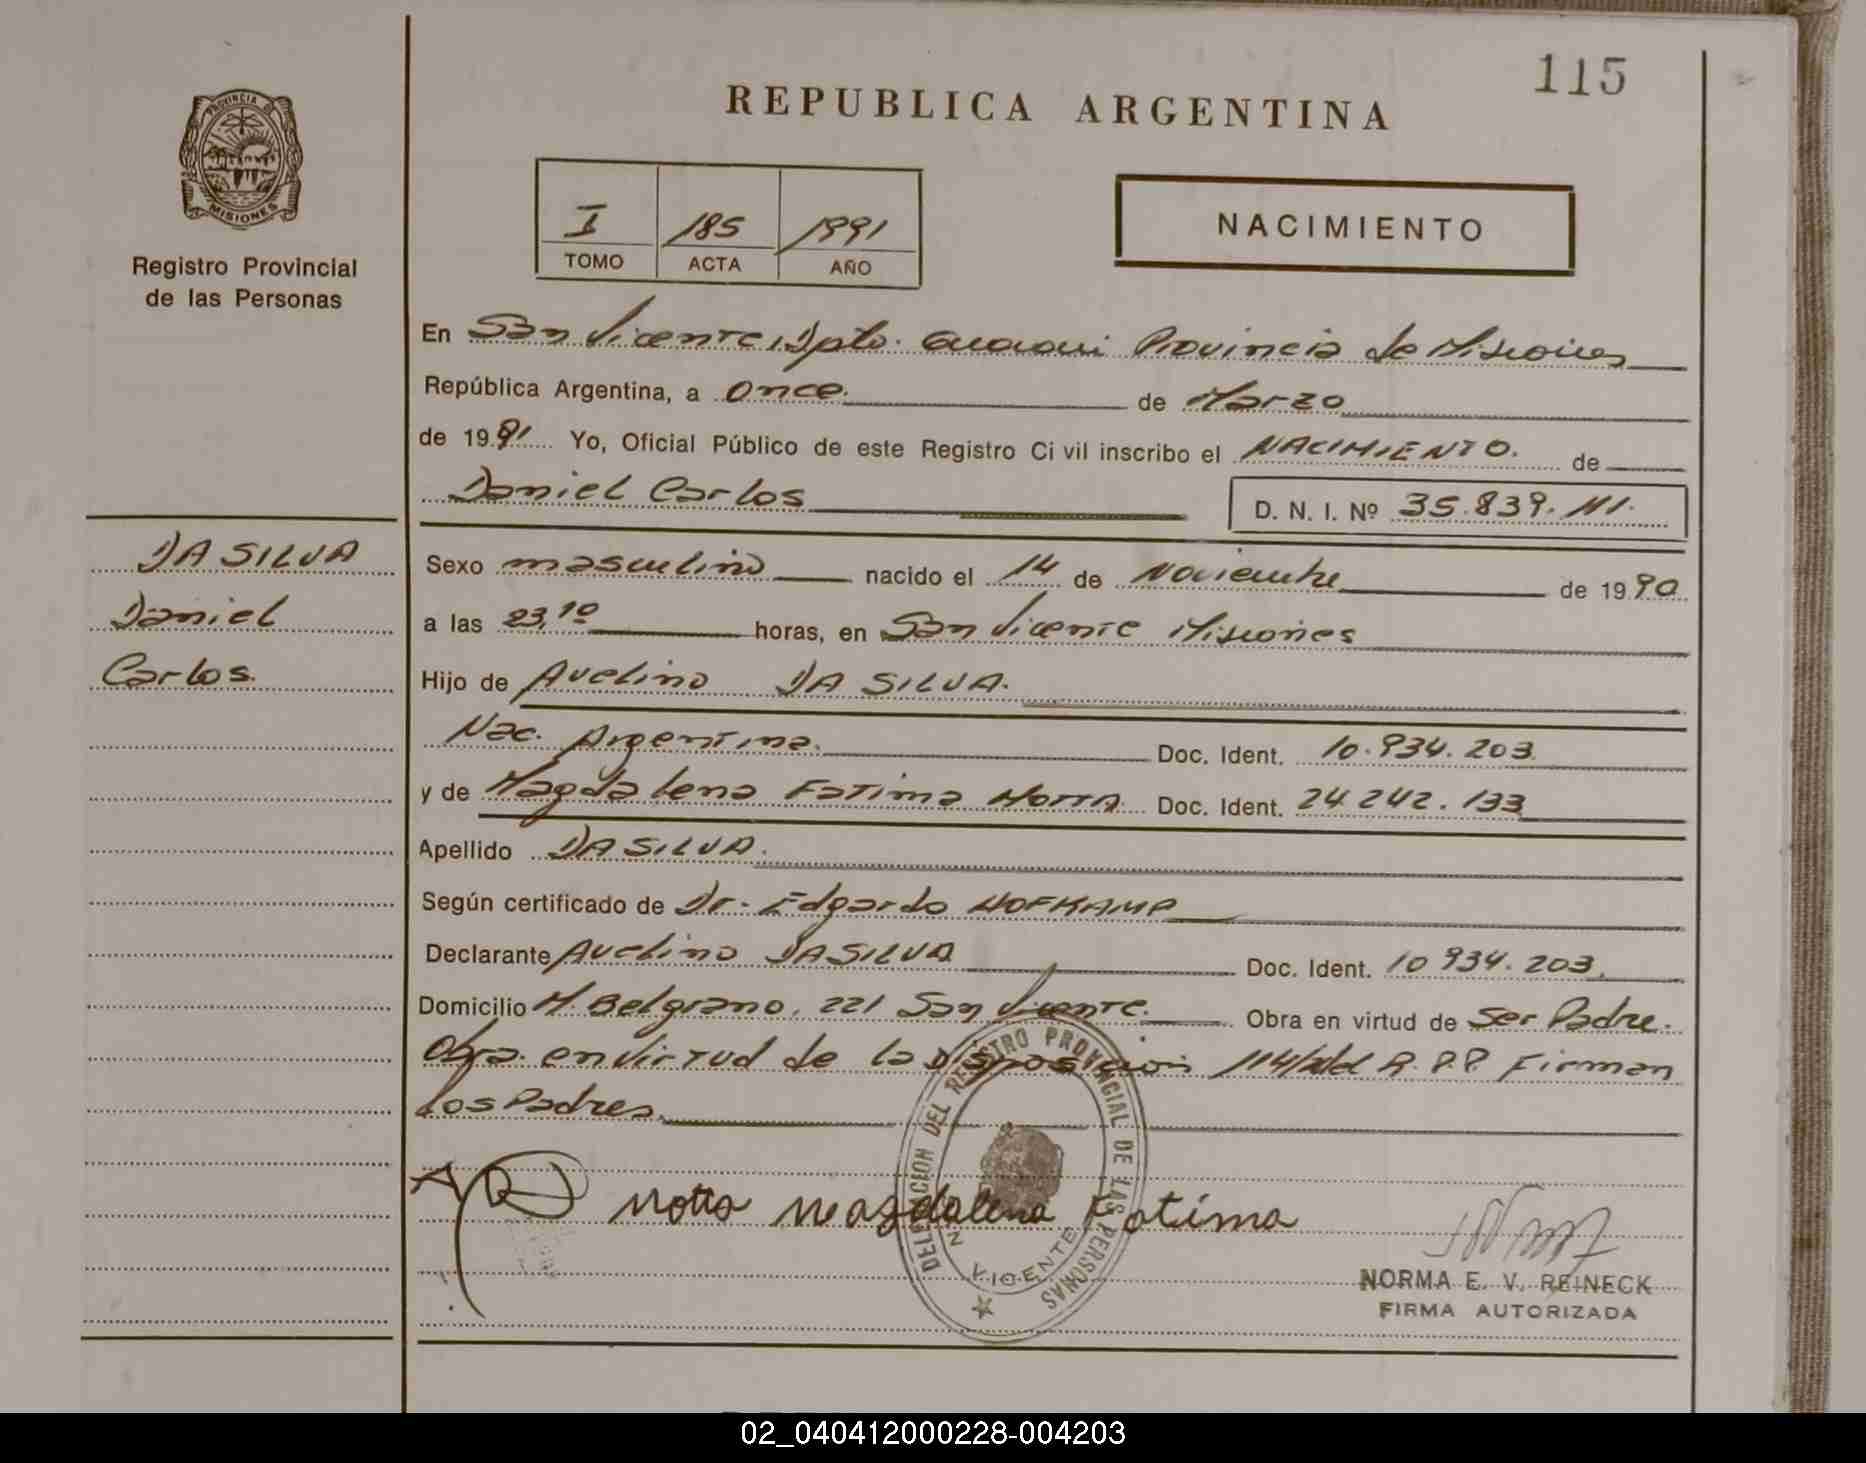 115
REPUBLICA ARGENTINA
PROVINCIA DE
MISIONES
Registro Provincial
de las Personas
I 185 1991
TOMO ACTA AÑO
NACIMIENTO
En San Vicente, Dpto. Guarani Provincia de Misiones
República Argentina, a once. de Marzo
de 1991 Yo, Oficial Público de este Registro Ci vil inscribo el NACIMIENTO. de
Daniel Carlos
D. N. I. Nº 35.839.111.
DA SILVA
Daniel
Carlos.
Sexo masculino nacido el 14 de Noviembre de 1990
a las 23,10 horas, en San Vicente Misiones
Hijo de Avelino DA SILVA.
Nac. Argentina. Doc. Ident. 10.934.203
y de Magdalena Fatima MOTTA Doc. Ident. 24.242.133
Apellido DA SILVA.
Según certificado de Dr. Edgardo HOFKAMP
Declarante Avelino DA SILVA Doc. Ident. 10 934.203.
Domicilio M. Belgrano, 221 San Vicente. Obra en virtud de Ser Padre.
Obra en virtud de la Disposicion R.P.P Firman
los Padres.
DELEGACION DEL REGISTRO PROVINCIAL DE LAS PERSONAS
VICENTE
Motta Magdalena Fatima
NORMA E. V. REINECK
FIRMA AUTORIZADA
02_040412000228-004203